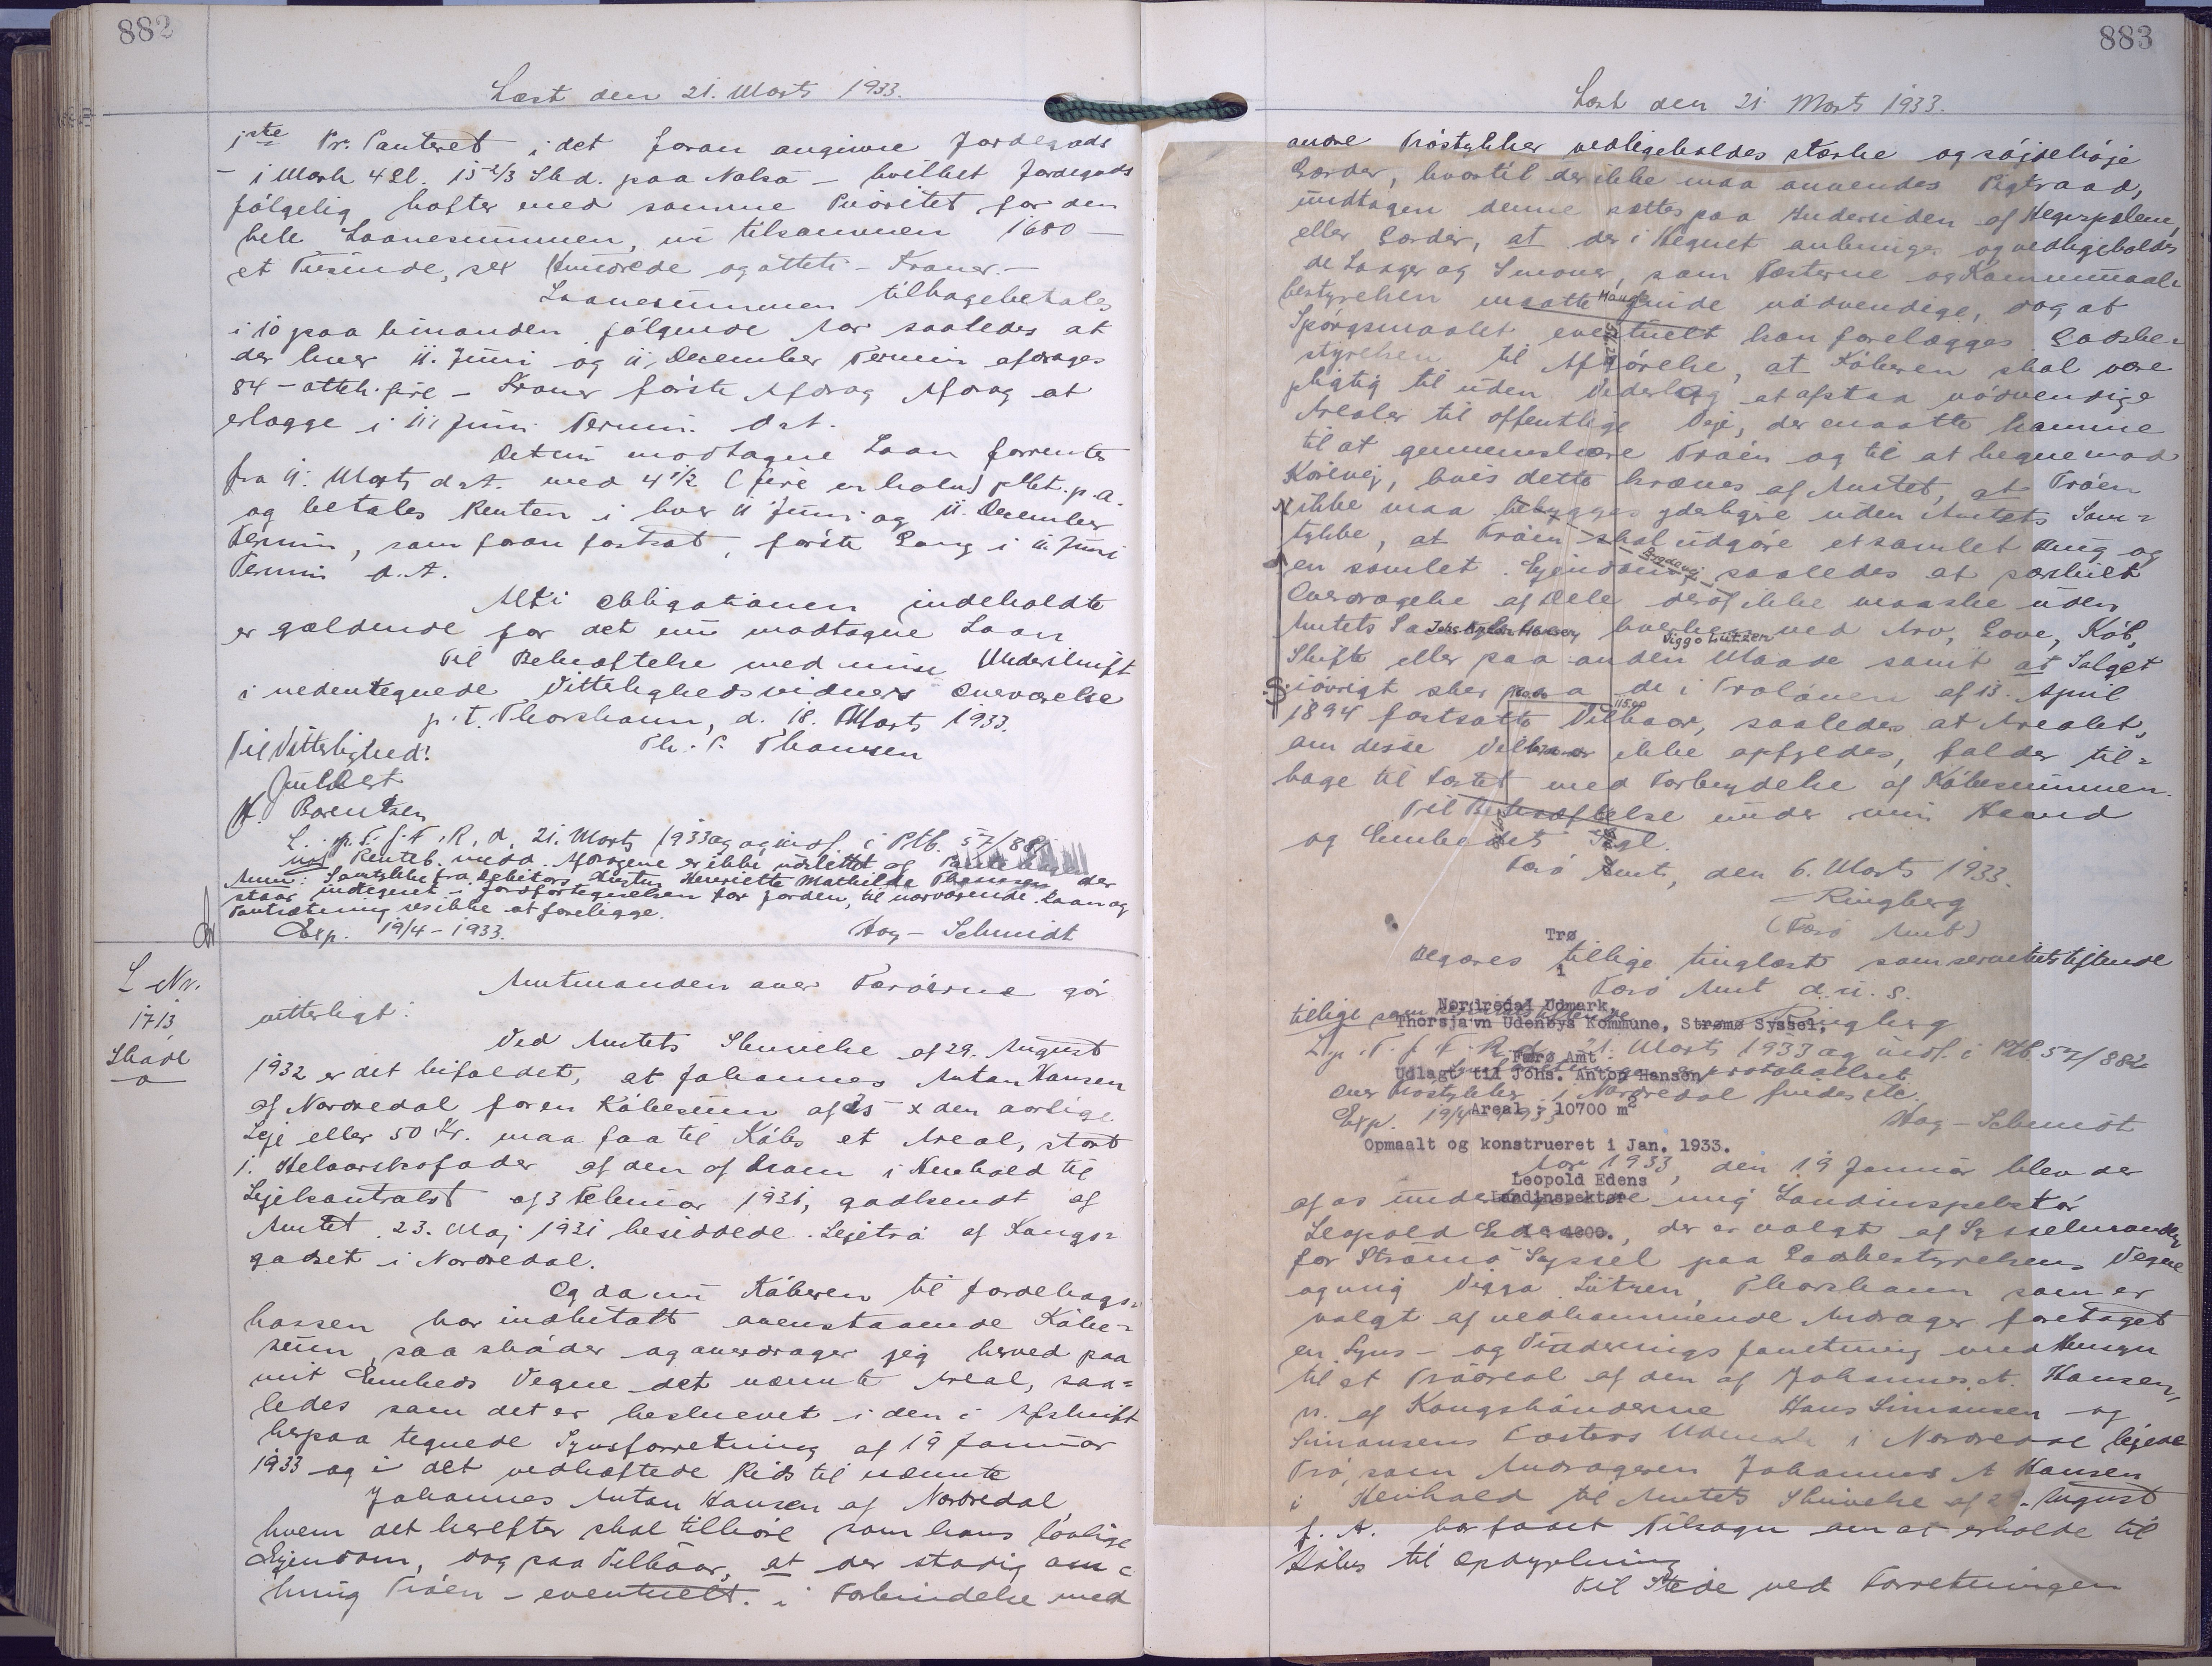 882
Læst den 21. Marts 1933.
1ste Pr. Panteret i det foran angivne Jordegods
- i Mark 4 Gl. 15 2/3 Skd. paa Nolsø - hvilket Jordegods
følgelig hæfter med samme Prioritet for den
hele Laanesummen, nu tilsammen 1680 -
et Tusinde, sex Hundrede og otteti - Kroner. -
Laanesummen tilbagebetales
i 10 paa hinanden følgende Aar saaledes at
der hver 11. Juni og 11. December Termin afdrages
84 - otteh. fire - Kroner første Afdrag Afdrag at
erlægge i 11. Juni Termin d.A.
Det nu modtagne Laan forrentes
fra 11. Marts d.A. med 4 1/2 (fire en halv) pCt. p.a.
og betales Renten i hver 11 Juni og 11. December
Termin, som foran fastsat, første Gang i 11. Juni
Termin d.A.
Alt i Obligationen indeholdte
er gældende for det nu modtagne Laan
Til Bekræftelse med min Underskrift
i nedentegnede Vitterlighedsvidners Overværelse
p.t. Thorshavn, d. 18. Marts 1933.
Til Vitterlighed! Th. P. Thomsen
H. Berentsen
L. p. T. f. F. R. d. 21. Marts 1933 og og indf. i Ptb. 57/881
Renteb. medd. Afdragene er ikke udslettet af
Anm: Samtykke fra Debitors Hustru Henriette Mathilde Thomsen der
staar indtegnet i Jordfortegnelsen for Jorden, til nærværende Laan og
Pantsætning ses ikke at foreligge.
Exp. 19/4 - 1933. Hoy-Schmidt
L. Nr.
1713
Skøde
Amtmanden over Færøerne gør
vitterligt:
Ved Amtets Skrivelse af 29. August
1932 er det bifaldet, at Johannes Anton Hansen
af Nordredal for en Købesum af 25 x den aarlige
Leje eller 50 Kr. maa faa til Købs et Areal, stort
1. Helaarskofoder af den af ham i Henhold til
Lejekontrakt af 3 Februar 1931, godkendt af
Amtet 23. Maj 1931 besiddede Lejetrø af Kongs=
godset i Nordredal.
Og da nu Køberen til Jordebogs=
kassen har indbetalt ovenstaaende Købe=
sum, saa skøder og overdrager jeg herved paa
mit Embeds Vegne det nævnte Areal, saa=
ledes som det er beskrevet i den i Afskrift
herpaa tegnede Synsforretning af 19 Januar
1933 og i det vedhæftede Rids til nævnte
Johannes Anton Hansen af Nordredal
hvem det herefter skal tilhøre som hans lovlige
Ejendom, dog paa Vilkaar, at der stadig om=
kring Trøen - eventuelt. i Forbindelse med
883
Læst den 21. Marts 1933.
andre Trøstykker vedligeholdes stærke og søjdehøje
Gærder, hvortil der ikke maa anvendes Pigtraad,
undtagen denne sættes paa Indersiden af Hegnspælene,
eller Gærder, at der i Hegnet anbringes og vedligeholdes
de Laager og Smover, som Fæsterne og Kommunal=
bestyrelsen maatte finde nødvendige, dog at
Hauge
Spørgsmaalet eventuelt kan forelægges Godsbe=
styrelsen til Afgørelse, at Køberen skal være
pligtig til uden Vederlag at afstaa nødvendige
Arealer til offentlige Veje, der maatte komme
til at gennemskære Trøen og til at hegne mod
Kørevej, hvis dette kræves af Amtet, at Trøen
N
ikke maa bebygges yderligere uden Amtets Sam=
tykke, at Trøen skal udgøre et samlet Brug og
Bygdevej
en samlet Ejendom, saaledes at særskilt
Overdragelse af Dele deraf ikke maa ske uden
Amtets Samtykke hverken ved Arv, Gave, Køb,
Johs. Anton Hansen
Viggo Lützen
Skifte eller paa anden Maade samt at Salget
S.
iøvrigt sker paa de i Trøloven af 13. April
115.00
1894 fastsatte Vilkaar, saaledes at Arealet,
om disse Vilkaar ikke opfyldes, falder til=
bage til Fæstet med Forbrydelse af Købesummen.
Til Bekræftelse under min Haand
og Embedets Segl.
Færø Amt, den 6. Marts 1933.
Ringberg
(Færø Amt)
Trø
Begæres tillige tinglæst som servitutstiftende
1
Færø Amt d.u.s.
Nordredal Udmark,
tillige som
Thorsjavn Udenbys Kommune, Strømø Syssel,
Ringberg
L. p. T. f. F. R. d. 21. Marts 1933 og indf. i Ptb. 57/882
Færø Amt.
Udlagt til Johs. Anton Hansen
over Trøstykker i Nordredal findes etc.
Areal : 10700 m2
Exp. 19/4 1933 Hoy-Schmidt
Opmaalt og konstrueret i Jan. 1933.
Aar 1933, den 19 Januar blev der
Leopold Edens
Landinspektør
af os undertegnede mig Landinspektør
Leopold Edens, der er valgt af Sysselmanden
1 : 4000.
for Strømø Syssel paa Godsbestyrelsens Vegne
og mig Viggo Lützen, Thorshavn som er
valgt af vedkommende Andrager foretaget
en Syns- og Vurderingsforretning med Hensyn
til et Trøareal af den af Johannes A. Hansen,
N. af Kongsbønderne Hans Simonsen og
Simonsens Fæsters Udmark i Nordredal lejede
Trø, som Andrageren Johannes A Hansen
i Henhold til Amtets Skrivelse af 29. August
f. A. har faaet Tilsagn om at erholde til
Købs til Opdyrkning
Til Stede ved Forretningen